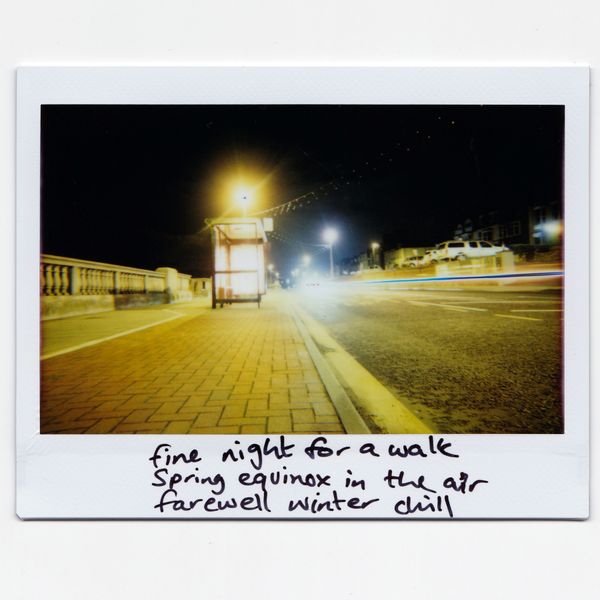 fine night for a walk
Spring equinox in the air
farewell winter chill